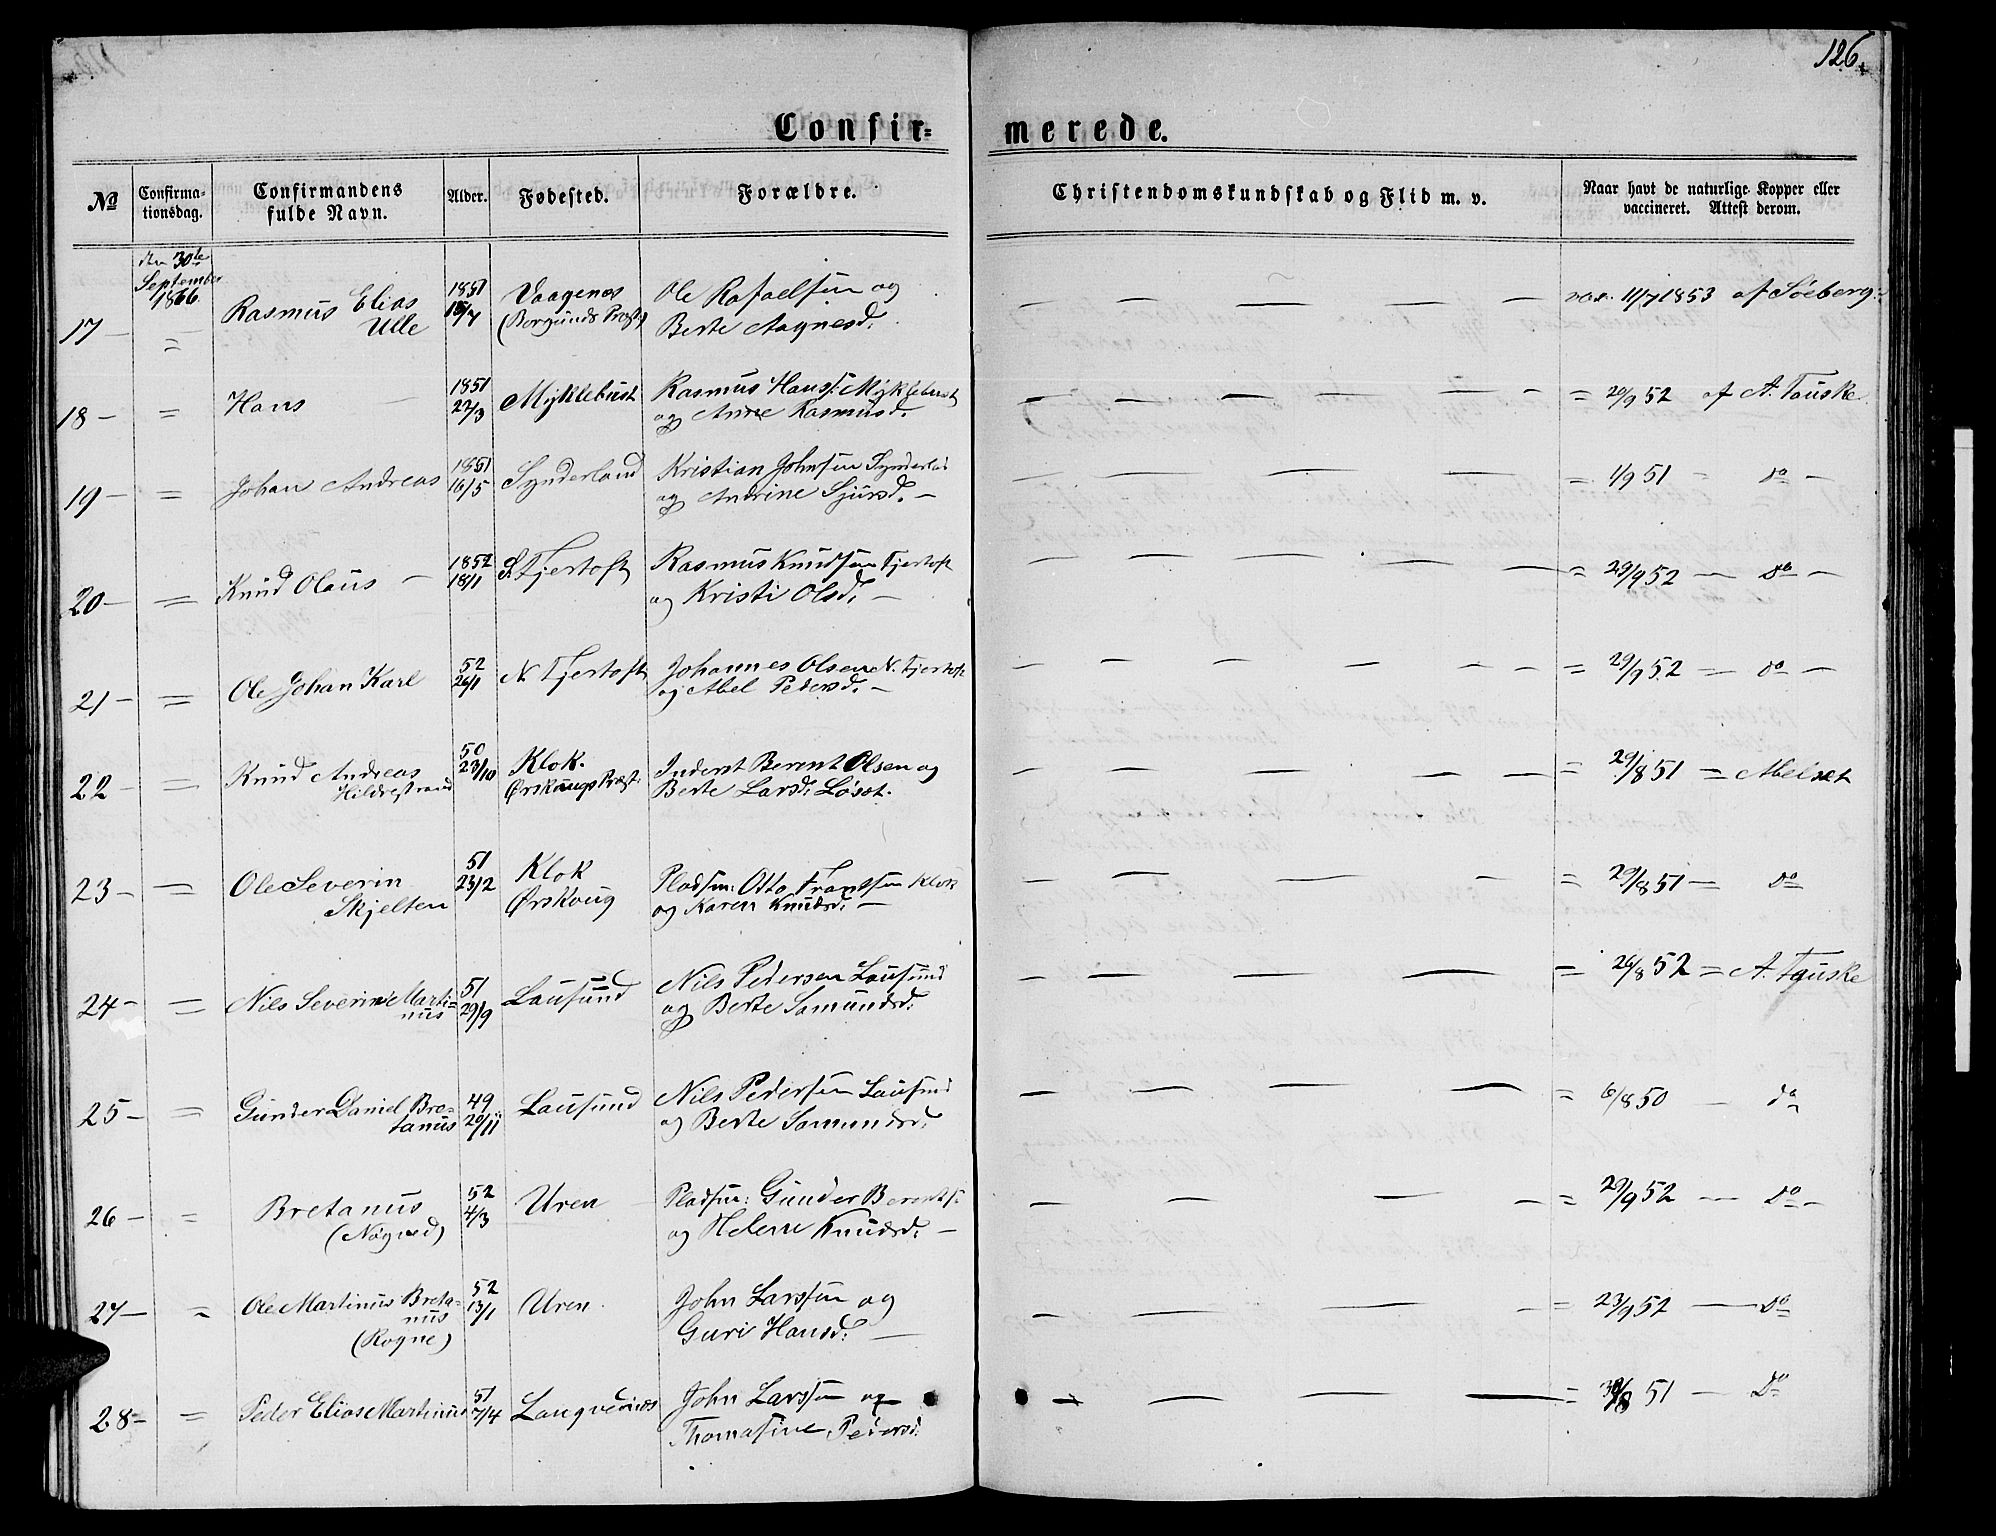 126.
Confir=merede.
No
Confirma-
tionsdag.
Confirmandens
fulde Navn.
Alder.
Fødested.
Forældre.
Christendomskundskab og Flid m. v.
Naar havt de naturlige Kopper eller
vaccineret. Attest derom.
den 30te
September
1866
17 — = Rasmus Elias 1851 Vaagenes Ole Rafaelsen og — — — — — vac. 11/7 1853 af Søeberg
Ulle (Borgunds Præst:) Berte Aagnesd.
18 — = Hans 1851 Myklebust Rasmus Hanss: Myklebust — — — — — = 20/9 52 af A. Tauske
27/3 og Anne Rasmusd.
19 — = Johan Andreas 1851 Synderland Kristian Johnsen Synderland — — — — = 1/9 51 — do —
16/5 og Andrine Sjursd. —
20 — = Knud Olaus — 1852 S. Fjertoft Rasmus Knudsen Fjertoft — — — — — = 29/9 52 — do —
18/1 og Kristi Olsd. —
21 — = Ole Johan Karl 52 N. Fjertoft Johannes Olsen N. Fjertoft — — — — — = 29/9 52 — do —
26/1 og Abel Pedersd. —
22 — = Knud Andreas 50 Klok. Inderst Berent Olsen og — — — — — = 29/8 51 = Abelset
Hildrestrand 23/10 Ørskougs Præst: Berte Larsd. Løset.
23 — = Ole Severin 51 Klok Pladsm: Otto Frantsen Klok — — — — = 29/8 51 = do
Skjelten 23/2 Ørskoug og Karen Knudsd. —
24 — = Nils Severin Marti= 51 Lausund Nils Pedersen Lausund — — — — — = 26/8 52 = A. Tauske
nus 29/9 og Berte Samundsd.
25 — = Gunder Daniel Bre= 49 Lausund Nils Pedersen Lausund — — — — = 6/8 50 — do
tanus 20/11 og Berte Samundsd.
26 — = Bretanus 52 Uren Pladsm: Gunder Berents: — — — — = 29/9 52 — do —
4/3 og Helene Knudsd. —
27 — = Ole Martinus Breta= 52 Uren John Larssen og — — — — = 23/9 52 — do
nus 13/1 Guri Hansd. —
(Rogne)
28 — = Peder Elias Martinus 51 John Larssen og — — — — = 51 — do
7/4 Thomasine Pedersd.